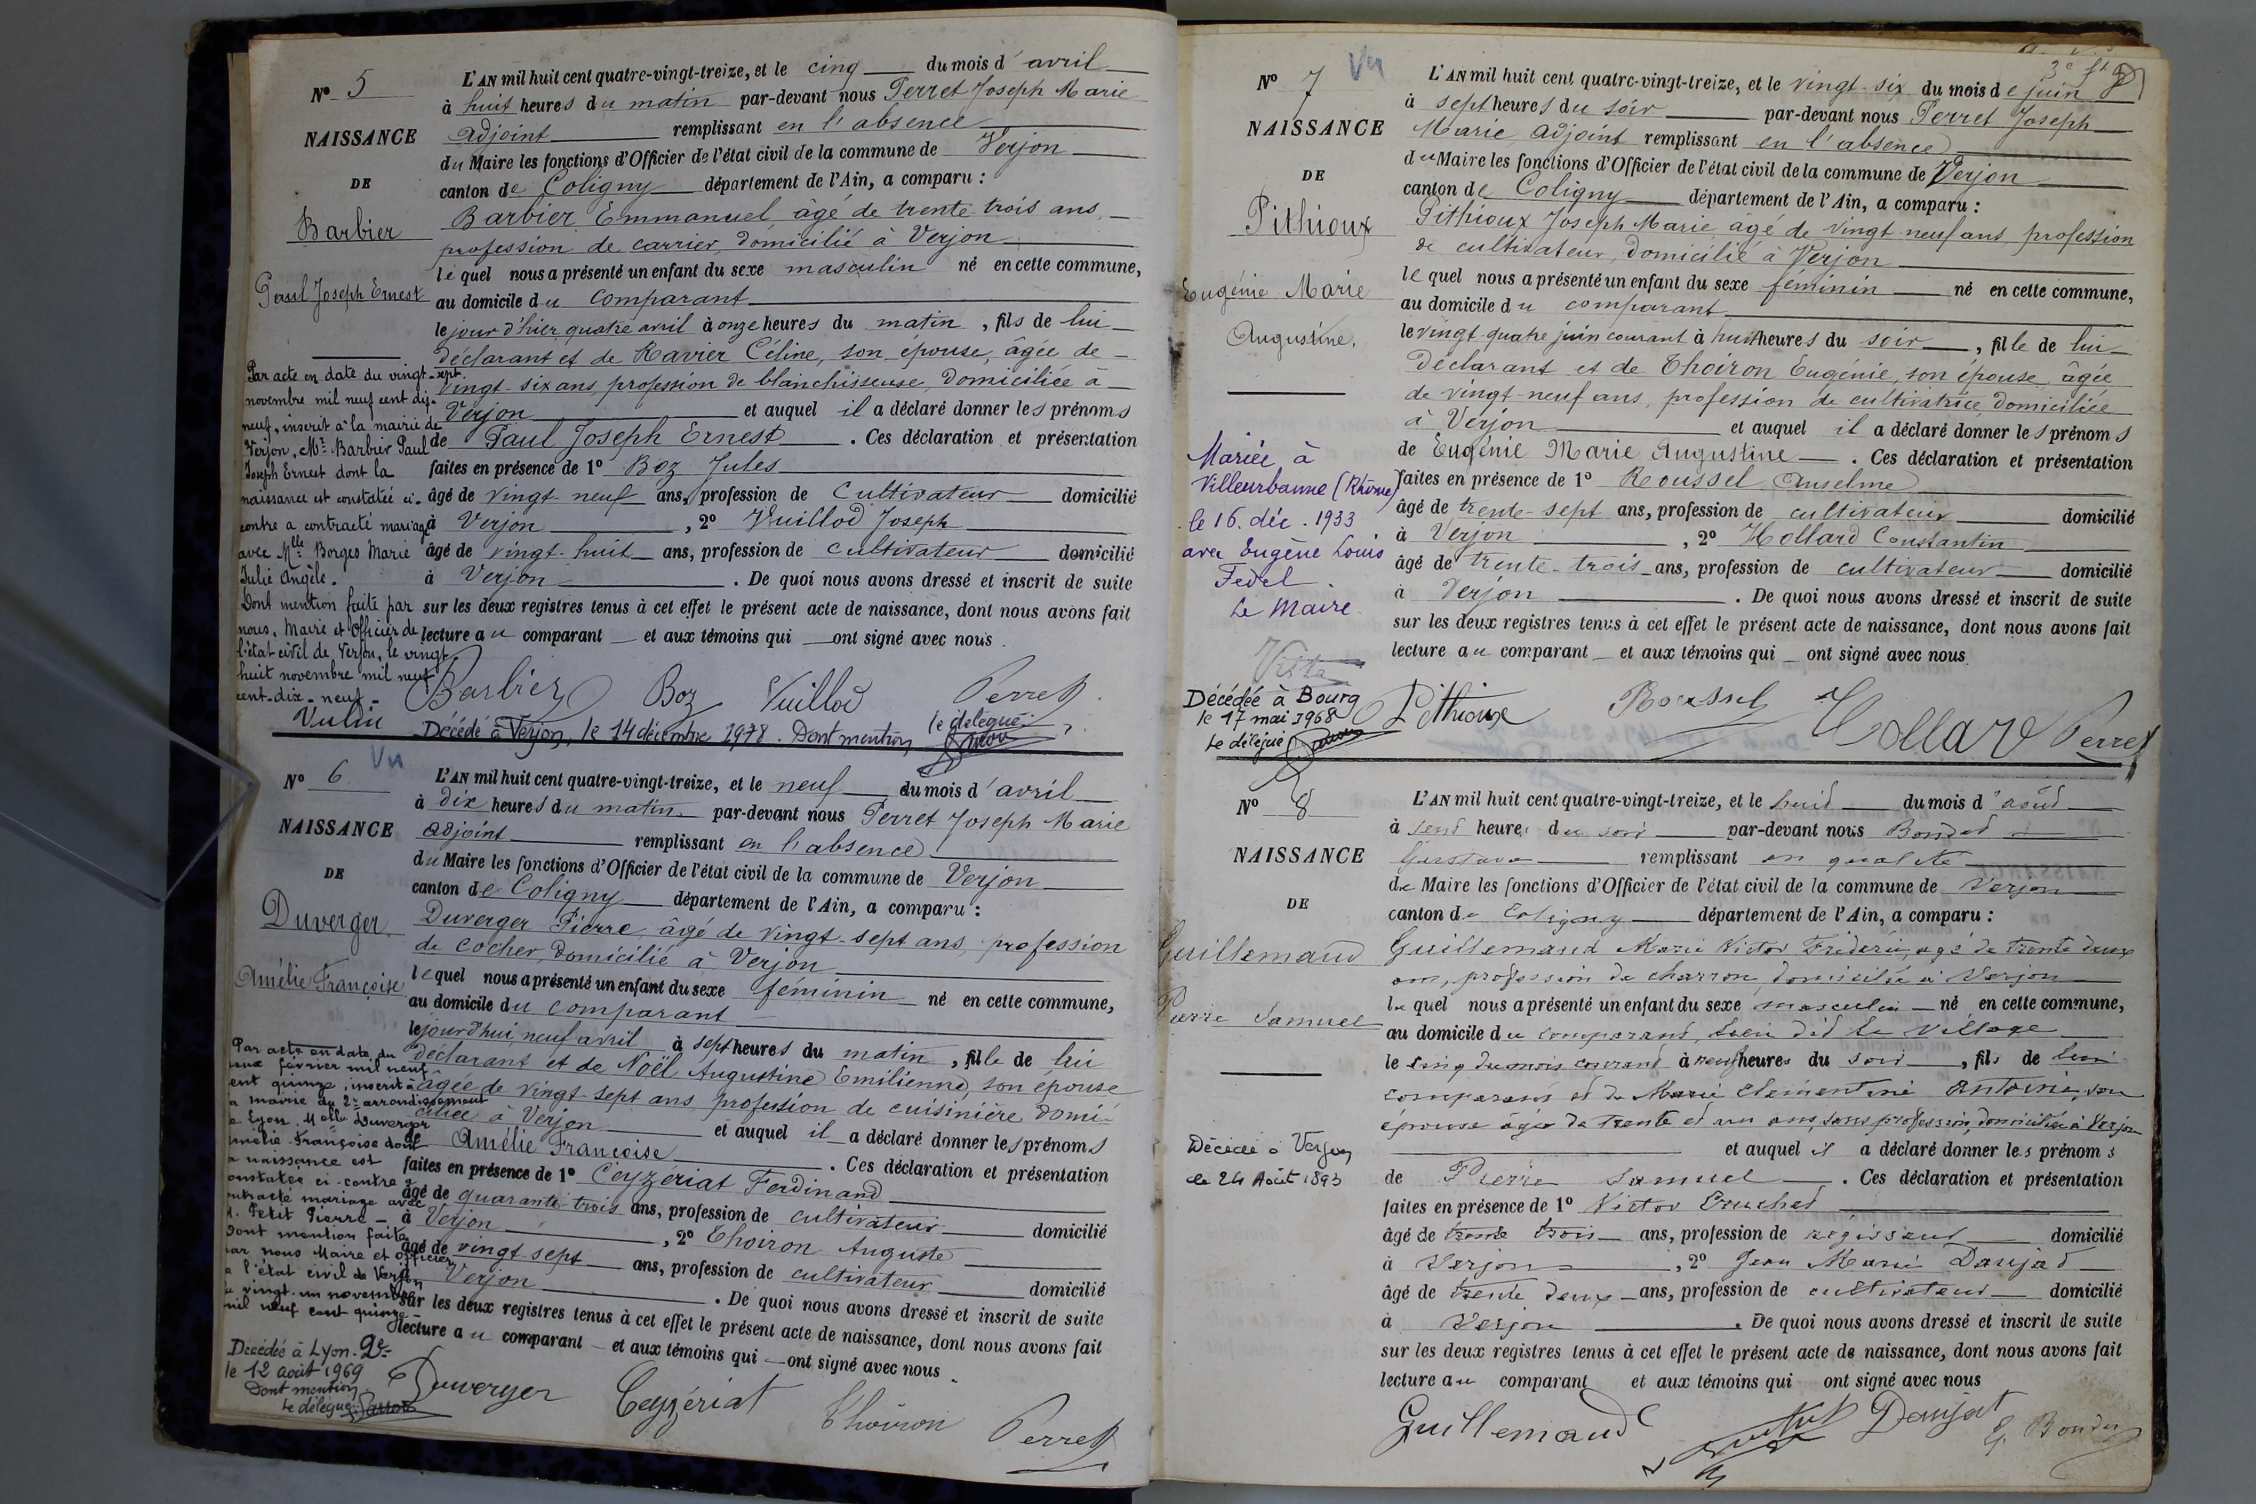 N° 5
NAISSANCE
DE
Barbier
Paul Joseph Ernest
Par acte en date du vingt-sept
novembre mil neuf cent dix-
neuf, inscrit à la mairie de
Verjon, Mr Barbier Paul
Joseph Ernest dont la
naissance est constatée ci-
contre a contracté mariage
avec Mlle Borges Marie
Julie Angèle.
Dont mention faite par
nous, Maire et Officier de
l'état civil de Verjon, le vingt
huit novembre mil neuf
cent-dix-neuf-
L'AN mil huit cent quatre-vingt-treize, et le cinq du mois d'avril
à huit heures du matin par-devant nous Perret Joseph Marie
adjoint remplissant en l'absence
du Maire les fonctions d'Officier de l'état civil de la commune de Verjon
canton de Coligny département de l'Ain, a comparu :
Barbier Emmanuel âgé de trente trois ans,
profession de carrier, domicilié à Verjon
lequel nous a présenté un enfant du sexe masculin né en cette commune,
au domicile du comparant
le jour d'hier quatre avril à onze heures du matin, fils de lui
déclarant et de Ravier Céline, son épouse, âgée de
vingt-six ans, profession de blanchisseuse, domiciliée à
Verjon et auquel il a déclaré donner les prénoms
de Paul Joseph Ernest. Ces déclaration et présentation
faites en présence de 1° Boz Jules
âgé de vingt-neuf ans, profession de cultivateur domicilié
à Verjon, 2° Vuillod Joseph
âgé de vingt-huit ans, profession de cultivateur domicilié
à Verjon. De quoi nous avons dressé et inscrit de suite
sur les deux registres tenus à cet effet le présent acte de naissance, dont nous avons fait
lecture au comparant et aux témoins qui ont signé avec nous.
Barbier Boz Vuillod Perret
Décédé à Verjon, le 14 décembre 1978. Dont mention le délégué
N° 6 Vu
NAISSANCE
DE
Duverger
Amélie Françoise
Par acte en date du
février mil neuf
cent quinze, inscrit à
la mairie du 2e arrondissement
de Lyon, Melle Duverger
Amélie Françoise dont
la naissance est
constatée ci-contre a
contracté mariage avec
M. Petit Pierre -
Dont mention faite
par nous Maire et officier
de l'état civil de Verjon
le vingt-un novembre
mil neuf cent quinze
Décédée à Lyon. 2e
le 12 août 1969
Dont mention
Le délégué
L'AN mil huit cent quatre-vingt-treize, et le neuf du mois d'avril
à dix heures du matin par-devant nous Perret Joseph Marie
adjoint remplissant en l'absence
du Maire les fonctions d'Officier de l'état civil de la commune de Verjon
canton de Coligny département de l'Ain, a comparu :
Duverger Pierre, âgé de vingt-sept ans, profession
de cocher, domicilié à Verjon
lequel nous a présenté un enfant du sexe féminin né en cette commune,
au domicile du comparant
le jourd'hui neuf avril à sept heures du matin, fille de lui
déclarant et de Noël Augustine Emilienne, son épouse
âgée de vingt-sept ans profession de cuisinière domi-
ciliée à Verjon et auquel il a déclaré donner les prénoms
de Amélie Françoise. Ces déclaration et présentation
faites en présence de 1° Ceyzériat Ferdinand
âgé de quarante-trois ans, profession de cultivateur domicilié
à Verjon, 2° Thoiron Auguste
âgé de vingt sept ans, profession de cultivateur domicilié
à Verjon. De quoi nous avons dressé et inscrit de suite
sur les deux registres tenus à cet effet le présent acte de naissance, dont nous avons fait
lecture au comparant et aux témoins qui ont signé avec nous.
Duverger Ceyzériat Thoiron Perret
N° 7 Vu
NAISSANCE
DE
Pithioux
Eugénie Marie
Augustine.
Mariée à
Villeurbanne (Rhône)
le 16. déc. 1933
avec Eugène Louis
Fedel.
Le Maire
Décédée à Bourg
le 17 mai 1968
Le délégué
L'AN mil huit cent quatre-vingt-treize, et le vingt-six du mois de juin
à sept heures du soir par-devant nous Perret Joseph
Marie, adjoint remplissant en l'absence
du Maire les fonctions d'Officier de l'état civil de la commune de Verjon
canton de Coligny département de l'Ain, a comparu :
Pithioux Joseph Marie âgé de vingt-neuf ans, profession
de cultivateur, domicilié à Verjon
lequel nous a présenté un enfant du sexe féminin né en cette commune,
au domicile du comparant
le vingt quatre juin courant à huit heures du soir, fille de lui
déclarant et de Thoiron Eugénie, son épouse, âgée
de vingt-neuf ans, profession de cultivatrice, domiciliée
à Verjon et auquel il a déclaré donner les prénoms
de Eugénie Marie Augustine. Ces déclaration et présentation
faites en présence de 1° Roussel Anselme
âgé de trente-sept ans, profession de cultivateur domicilié
à Verjon, 2° Hollard Constantin
âgé de trente-trois ans, profession de cultivateur domicilié
à Verjon. De quoi nous avons dressé et inscrit de suite
sur les deux registres tenus à cet effet le présent acte de naissance, dont nous avons fait
lecture au comparant et aux témoins qui ont signé avec nous.
Pithioux Roussel Hollard Perret
N° 8
NAISSANCE
DE
Guillemaud
Pierre Samuel
Décédé à Verjon
le 24 Août 1893
L'AN mil huit cent quatre-vingt-treize, et le huit du mois d'août
à heure du soir par-devant nous
Gustave remplissant en qualité
de Maire les fonctions d'Officier de l'état civil de la commune de Verjon
canton de Coligny département de l'Ain, a comparu :
Guillemaud Marie Victor Frédéric, agé de trente deux
ans, profession de charron, domicilié à Verjon
lequel nous a présenté un enfant du sexe masculin né en cette commune,
au domicile du comparant, lieu dit le Village
le cinq du mois courant à neuf heures du soir, fils de lui
comparant et de Marie Clementine Antoinie, son
épouse âgée de trente et un ans, sans profession, domiciliée à Verjon
et auquel il a déclaré donner les prénoms
de Pierre Samuel. Ces déclaration et présentation
faites en présence de 1° Victor
âgé de trente trois ans, profession de régisseur domicilié
à Verjon, 2° Jean Marie Daujat
âgé de trente deux ans, profession de cultivateur domicilié
à Verjon. De quoi nous avons dressé et inscrit de suite
sur les deux registres tenus à cet effet le présent acte de naissance, dont nous avons fait
lecture au comparant et aux témoins qui ont signé avec nous
Guillemaud Daujat